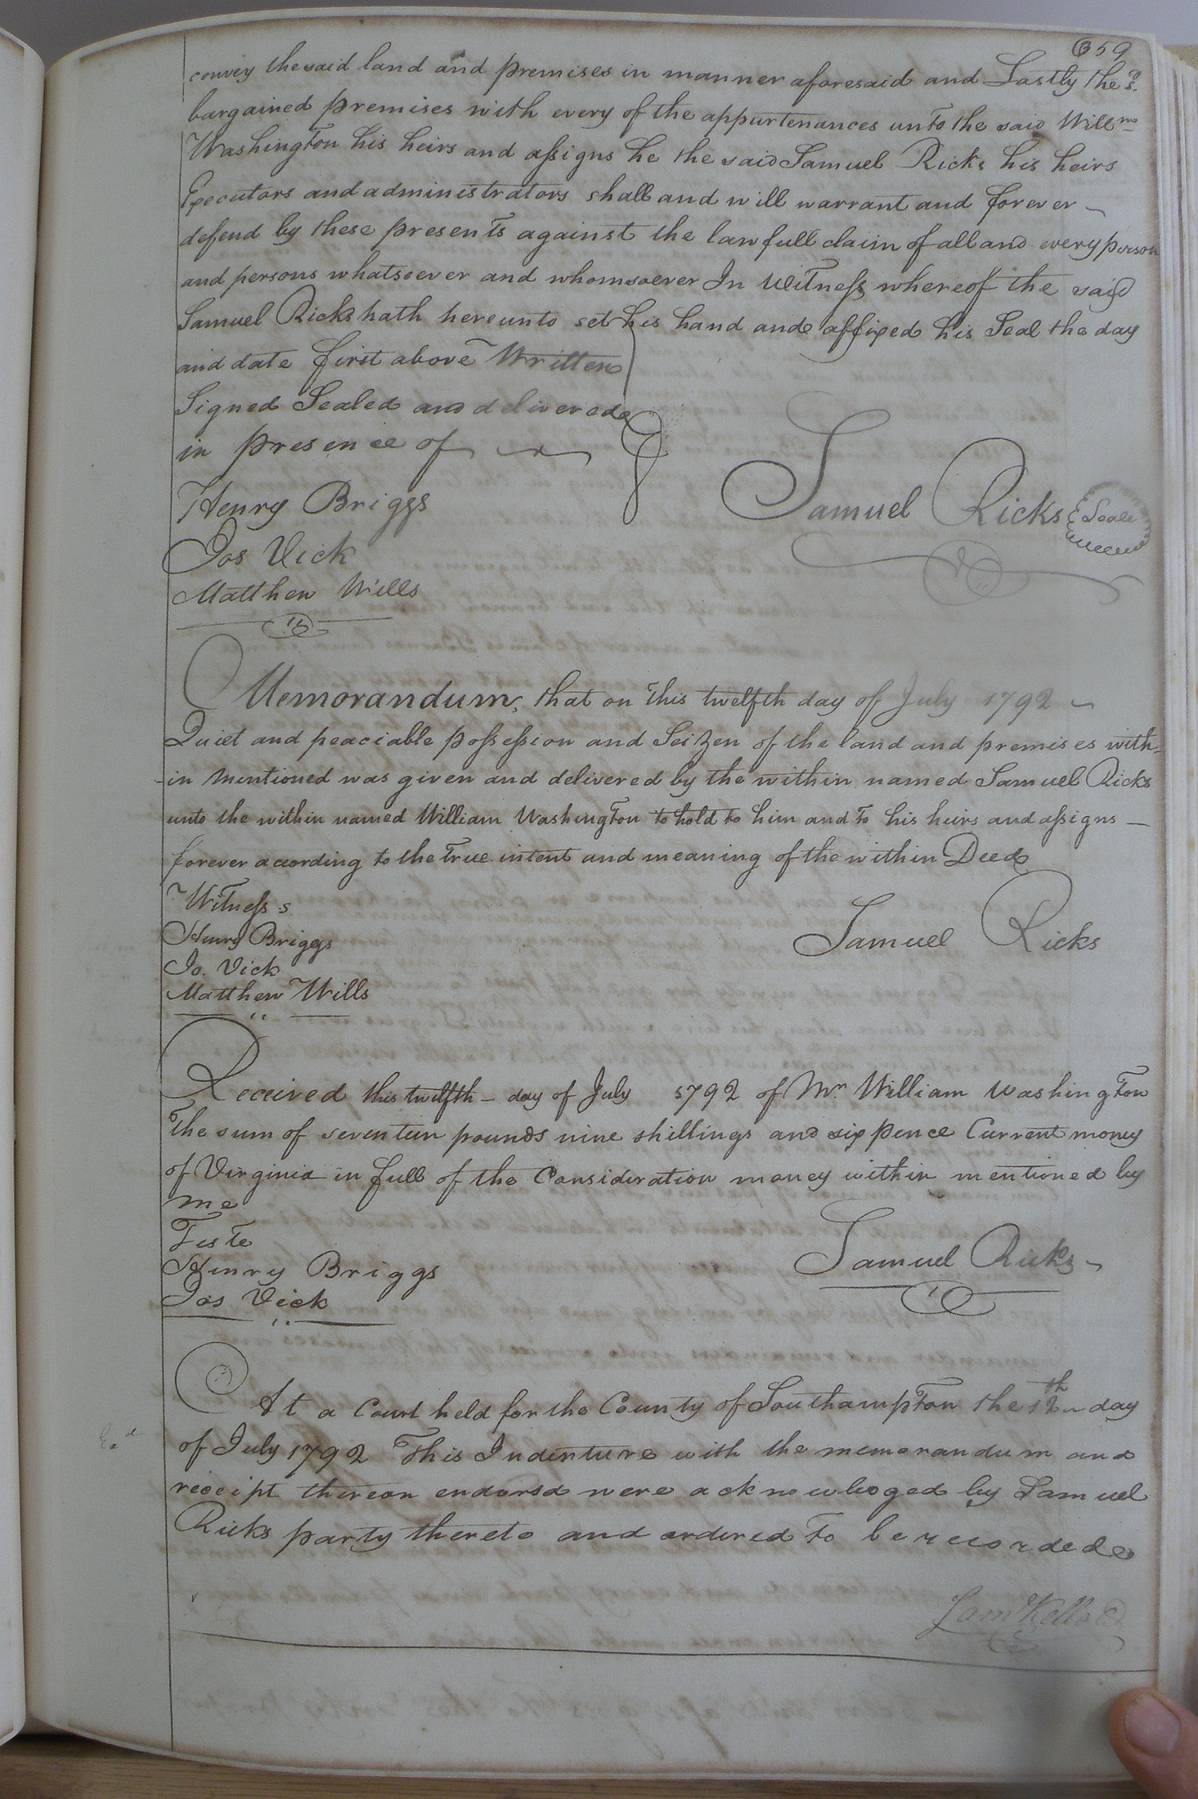 359
convey the said land and premises in manner aforesaid and Lastly the sd.
bargained premises with every of the appurtenances unto the said Willm
Washington his heirs and assigns he the said Samuel Ricks his heirs
Executors and administrators shall and will warrant and forever
defend by these presents against the lawfull claim of all and every person
and persons whatsoever and whomsoever In Witness whereof the said
Samuel Ricks hath hereunto set his hand and affixed his Seal the day
and date first above Written
Signed Sealed and delivered
in presence of
Henry Briggs
Samuel Ricks Seal
Jos Vick
Matthew Wills
Memorandum, that on this twelfth day of July 1792
Quiet and peaciable possession and Seizen of the land and premises with-
-in mentioned was given and delivered by the within named Samuel Ricks
unto the within named William Washington to hold to him and to his heirs and assigns
forever according to the true intent and meaning of the within Deed
Witness s
Henry Briggs
Samuel Ricks
Jo. Vick
Matthew Wills
Received this twelfth day of July 1792 of Mr William Washington
The sum of seventeen pounds nine shillings and six pence Current money
of Virginia in full of the Consideration money within mentioned by
me
Teste
Henry Briggs
Samuel Ricks
Jos Vick
At a Court held for the County of Southampton the 12th day
of July 1792 This Indenture with the memorandum and
receipt thereon endorsd were acknowledged by Samuel
Ricks party thereto and ordered to be recorded
Saml Kello